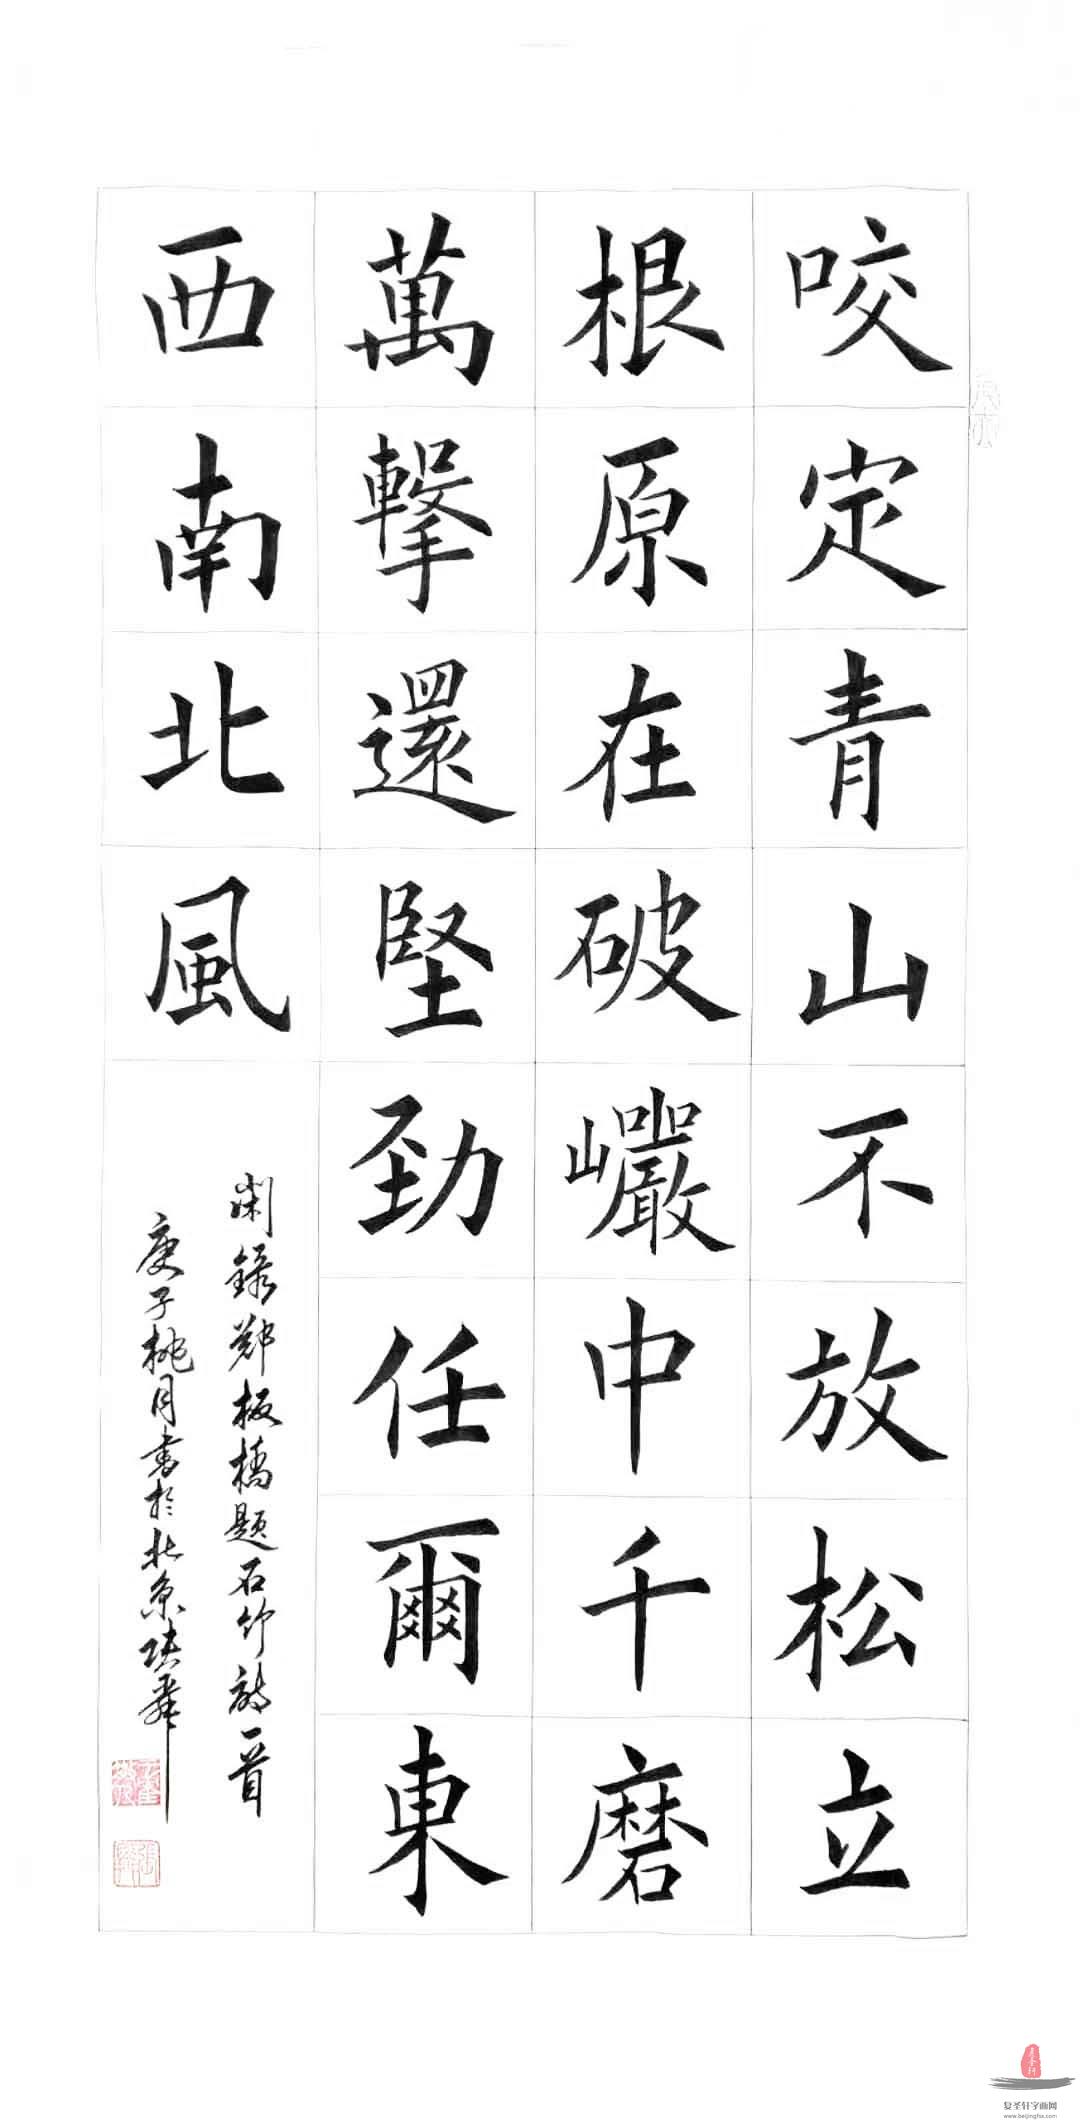 咬定青山不放松立
根原在破巖中千磨
萬擊還堅勁任爾東
西南北風
录郑板橋题石竹詩一首
庚子桃月書於北京
复圣轩字画网
www.beijingfsx.com